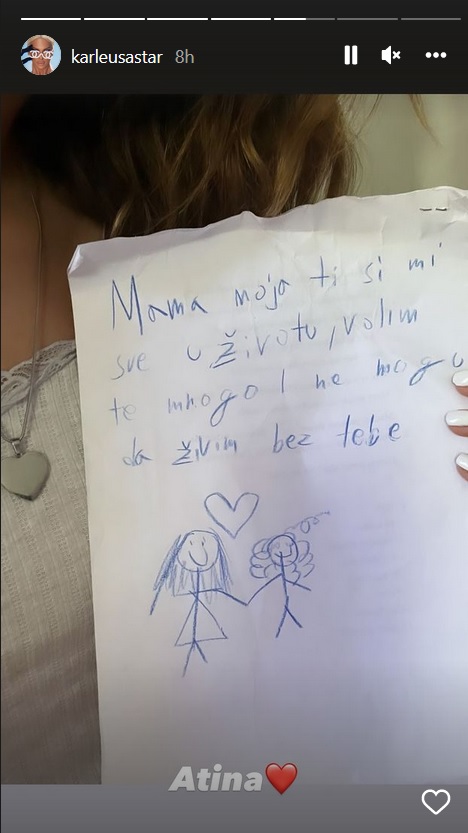 karleusastar 8h
Mama moja ti si mi
sve u životu, volim
te mnogo i ne mogu
da živim bez tebe
Atina❤️